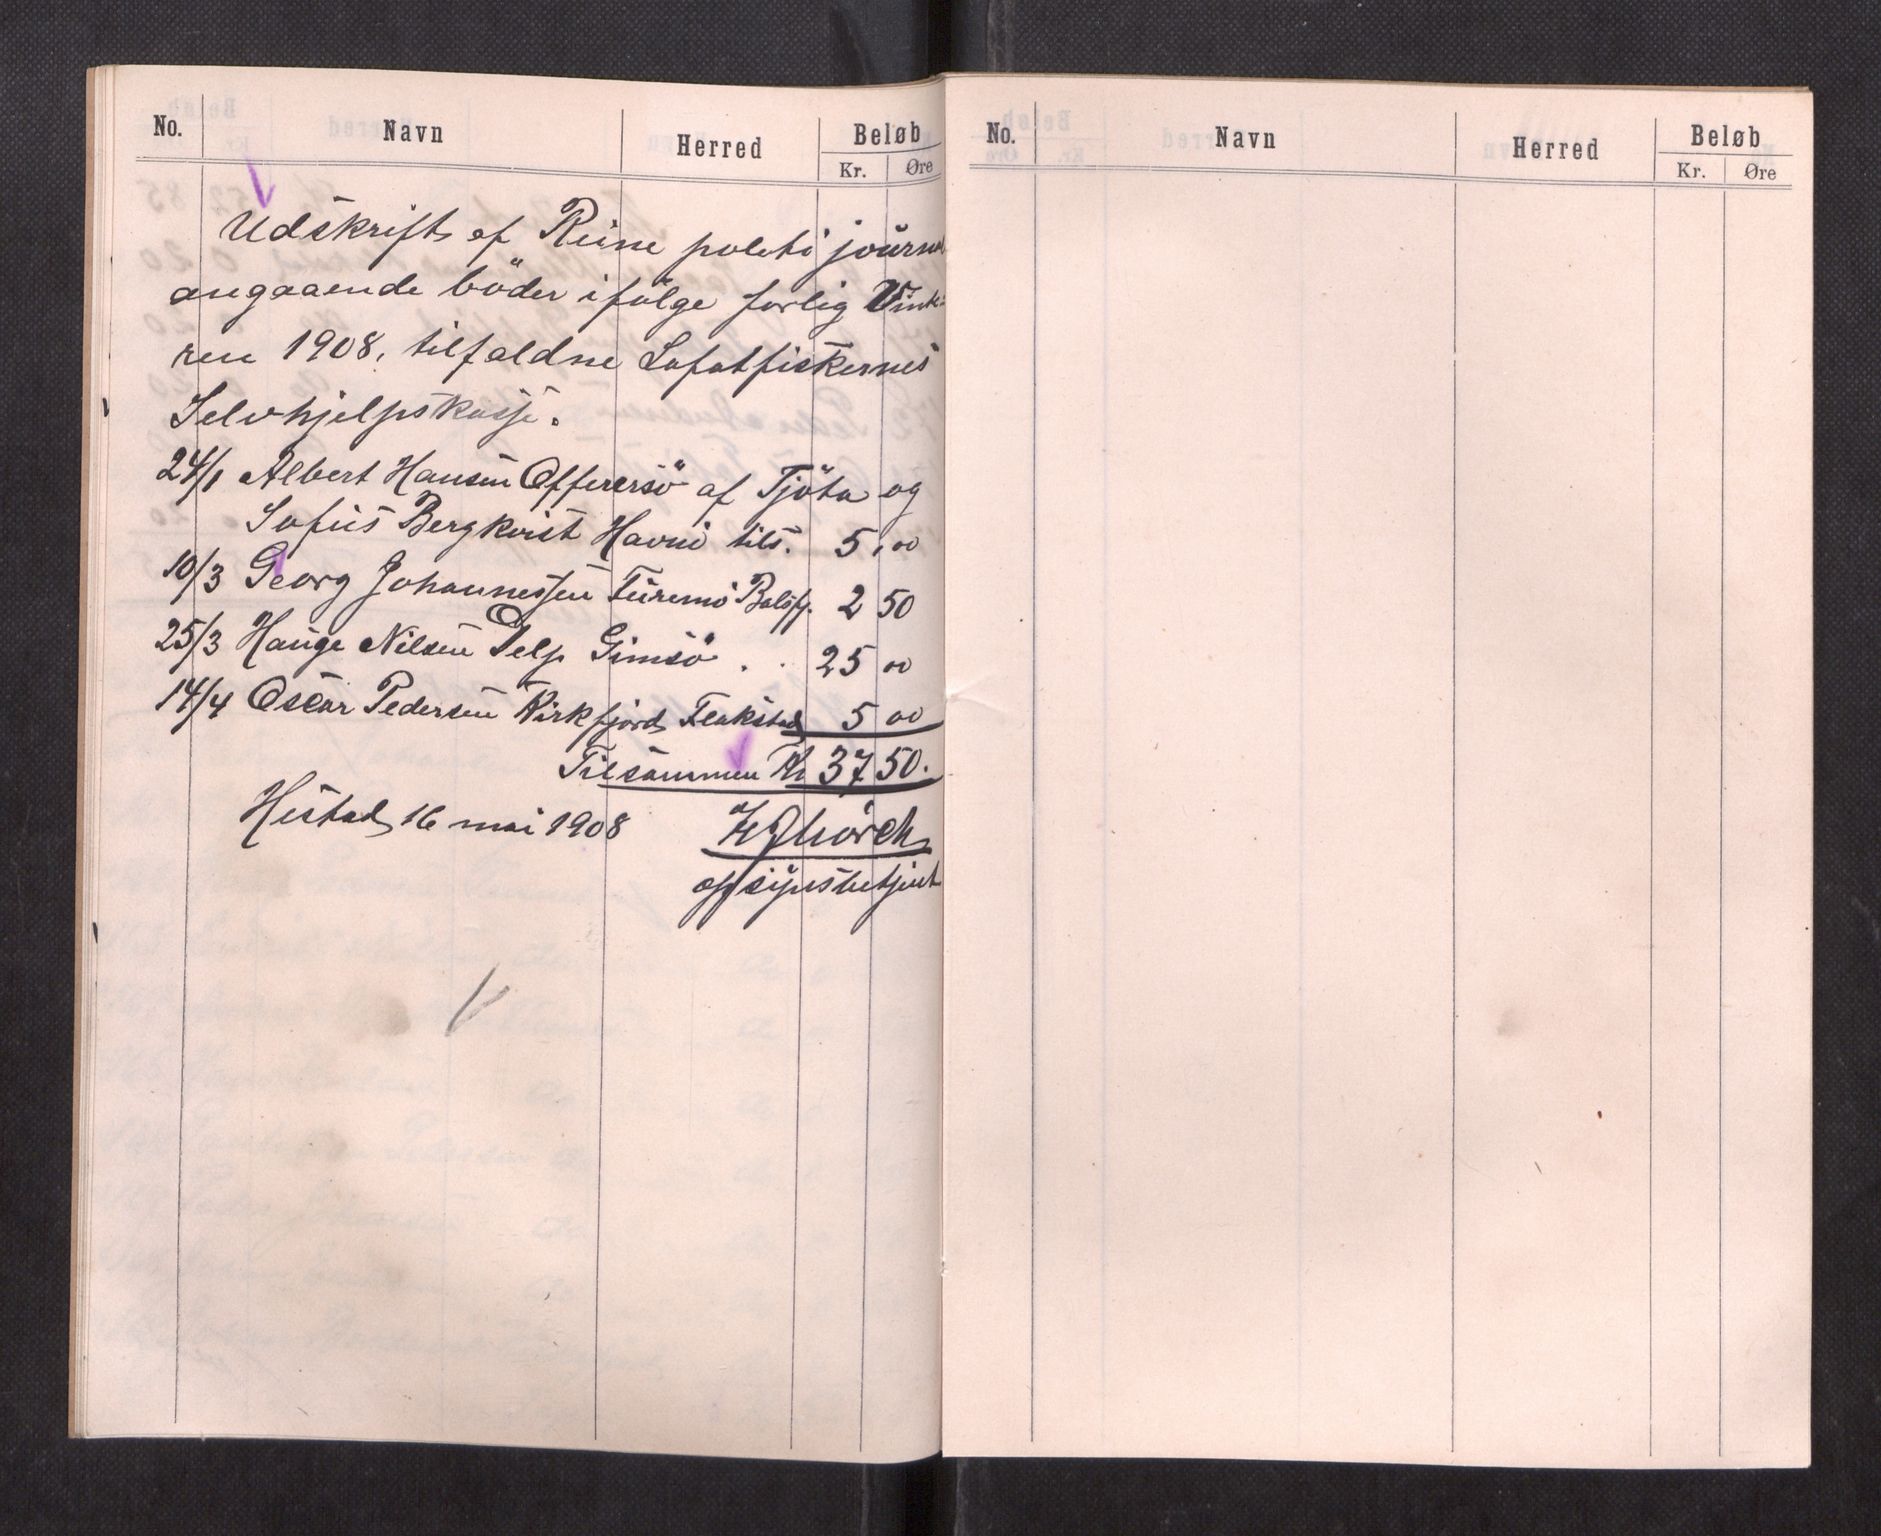 No. Navn Herred Beløb
Kr. Øre
Udskrift af Reine politi journal
angaaende böder ifölge forlig Vinte-
ren 1908, tilfaldne Lofotfiskernes
Selvhjelpskasse.
24/1 Albert Hansen Offersö af Tjöta og
Sofus Bergkvist Havn tils. 5,00
10/3 Georg Johannessen Furemo Balsfj. 2 50
25/3 Hauge Nilsen Delp Gimsö . . 25 00
14/4 Oscar Pedersen Kirkfjord Flakstad 5 00
Tilsammen Kr 37 50.
16 mai 1908
opsynsbetjent
No. Navn Herred Beløb
Kr. Øre